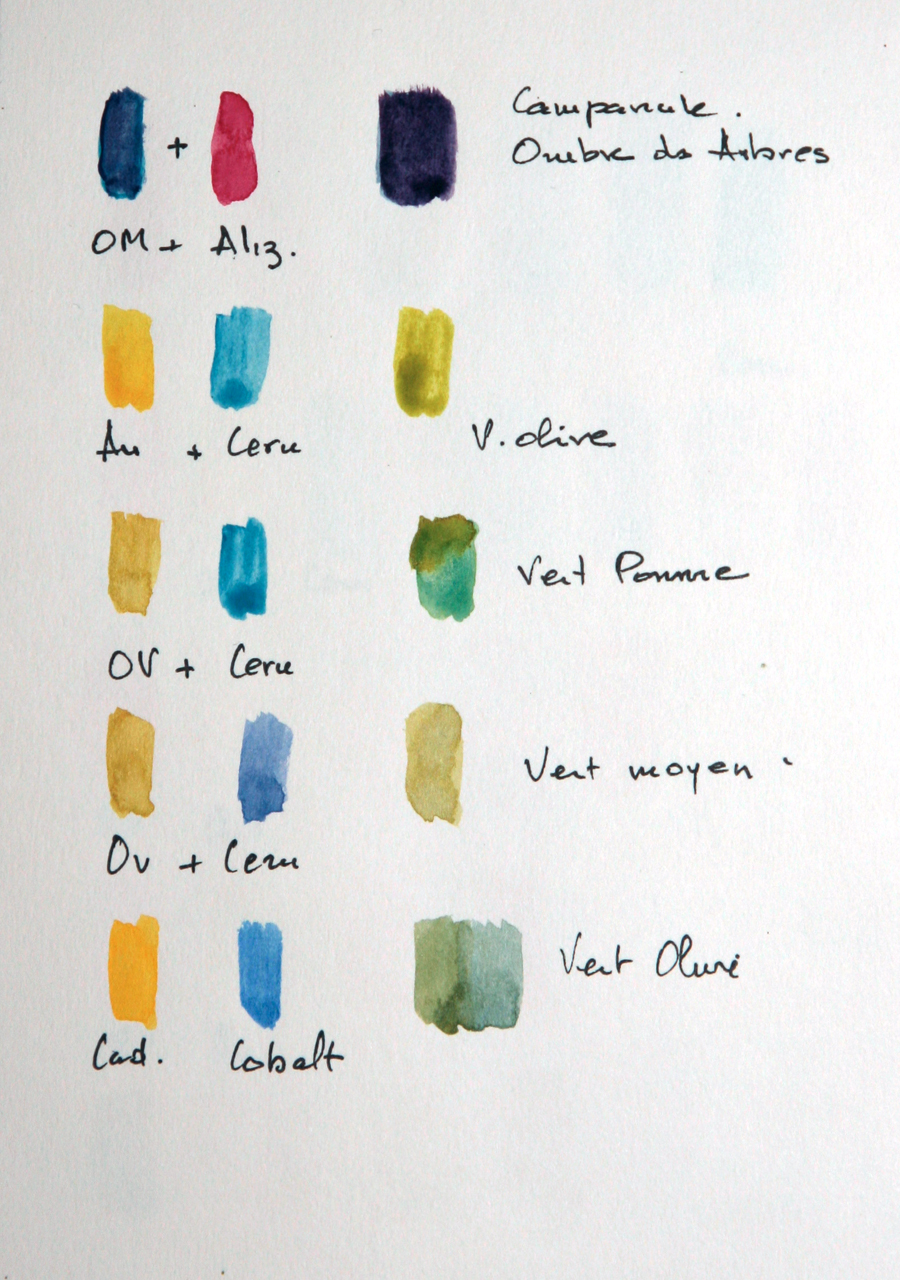 Campanule.
+
Ombre des Arbres
OM + Aliz.
Au + Ceru
V. olive
Vert Pomme
OV + Ceru
Vert moyen
Ov + Ceru
Vert Olive
Cad. Cobalt